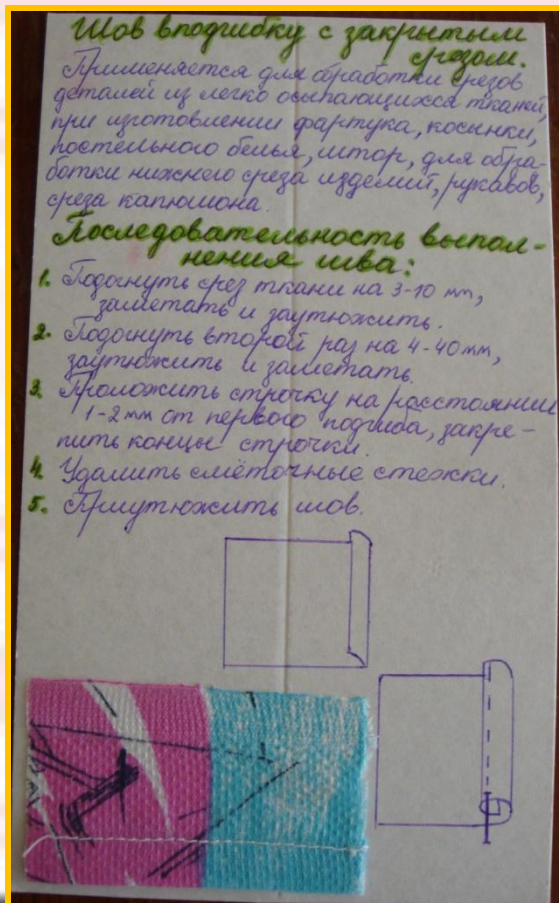 Шов вподгибку с закрытым
срезом.
Применяется для обработки срезов
деталей из легко осыпающихся тканей,
при изготовлении фартука, косынки,
постельного белья, штор, для обра-
ботки нижнего среза изделий, рукавов,
среза капюшона.
Последовательность выпол-
нения шва:
1. Подогнуть срез ткани на 3-10 мм,
заметать и заутюжить.
2. Подогнуть второй раз на 4-40 мм,
заутюжить и заметать.
3. Проложить строчку на расстоянии
1-2 мм от первого подгиба, закре-
пить концы строчки.
4. Удалить смёточные стежки.
5. Приутюжить шов.